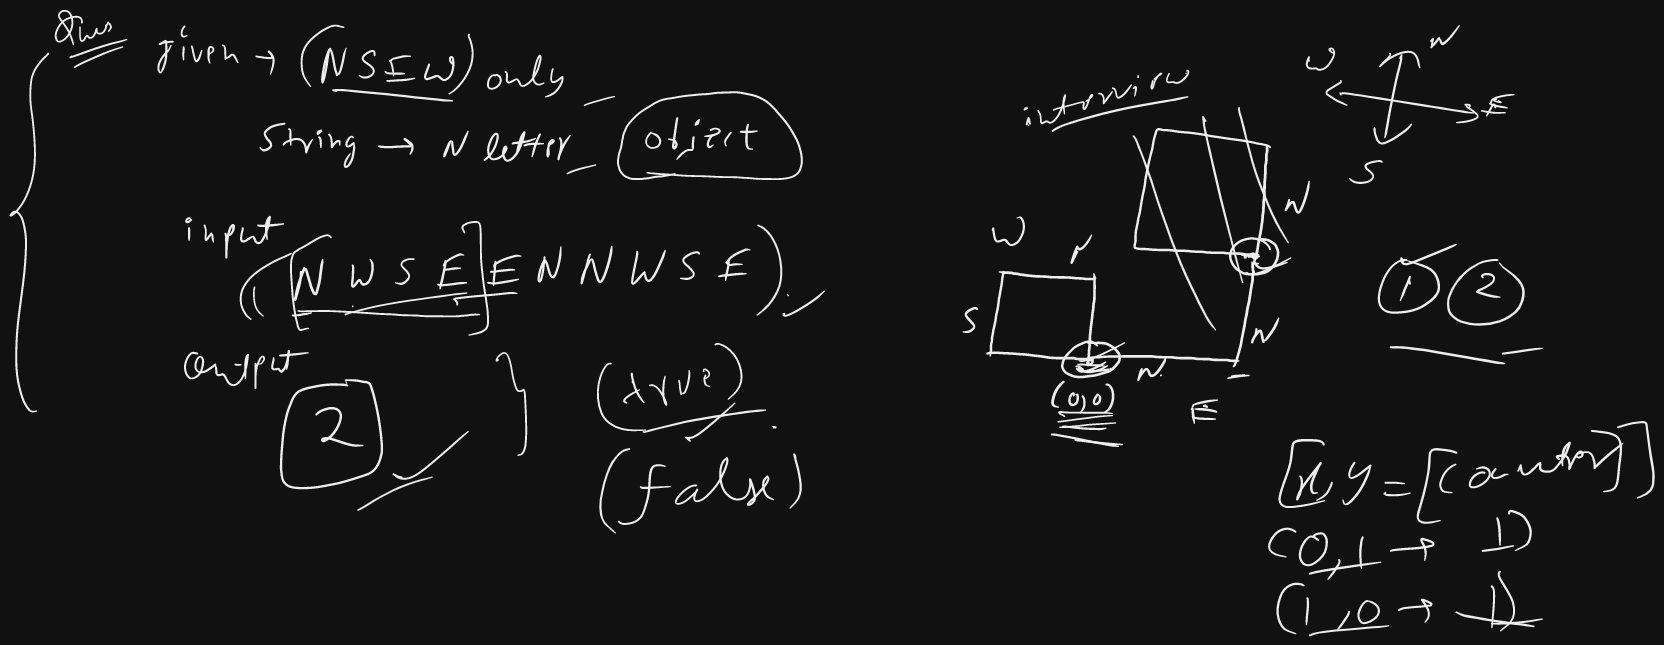 Ques given → (NSEW) only
String → N letter object
input
(NWSEENNWSE)
Output
2
(true)
(false)
interview
W N E S
W N
S
(0,0)
N
E
N
N
1 2
[x,y = [counter]]
(0,1 → 1)
(1,0 → 1)